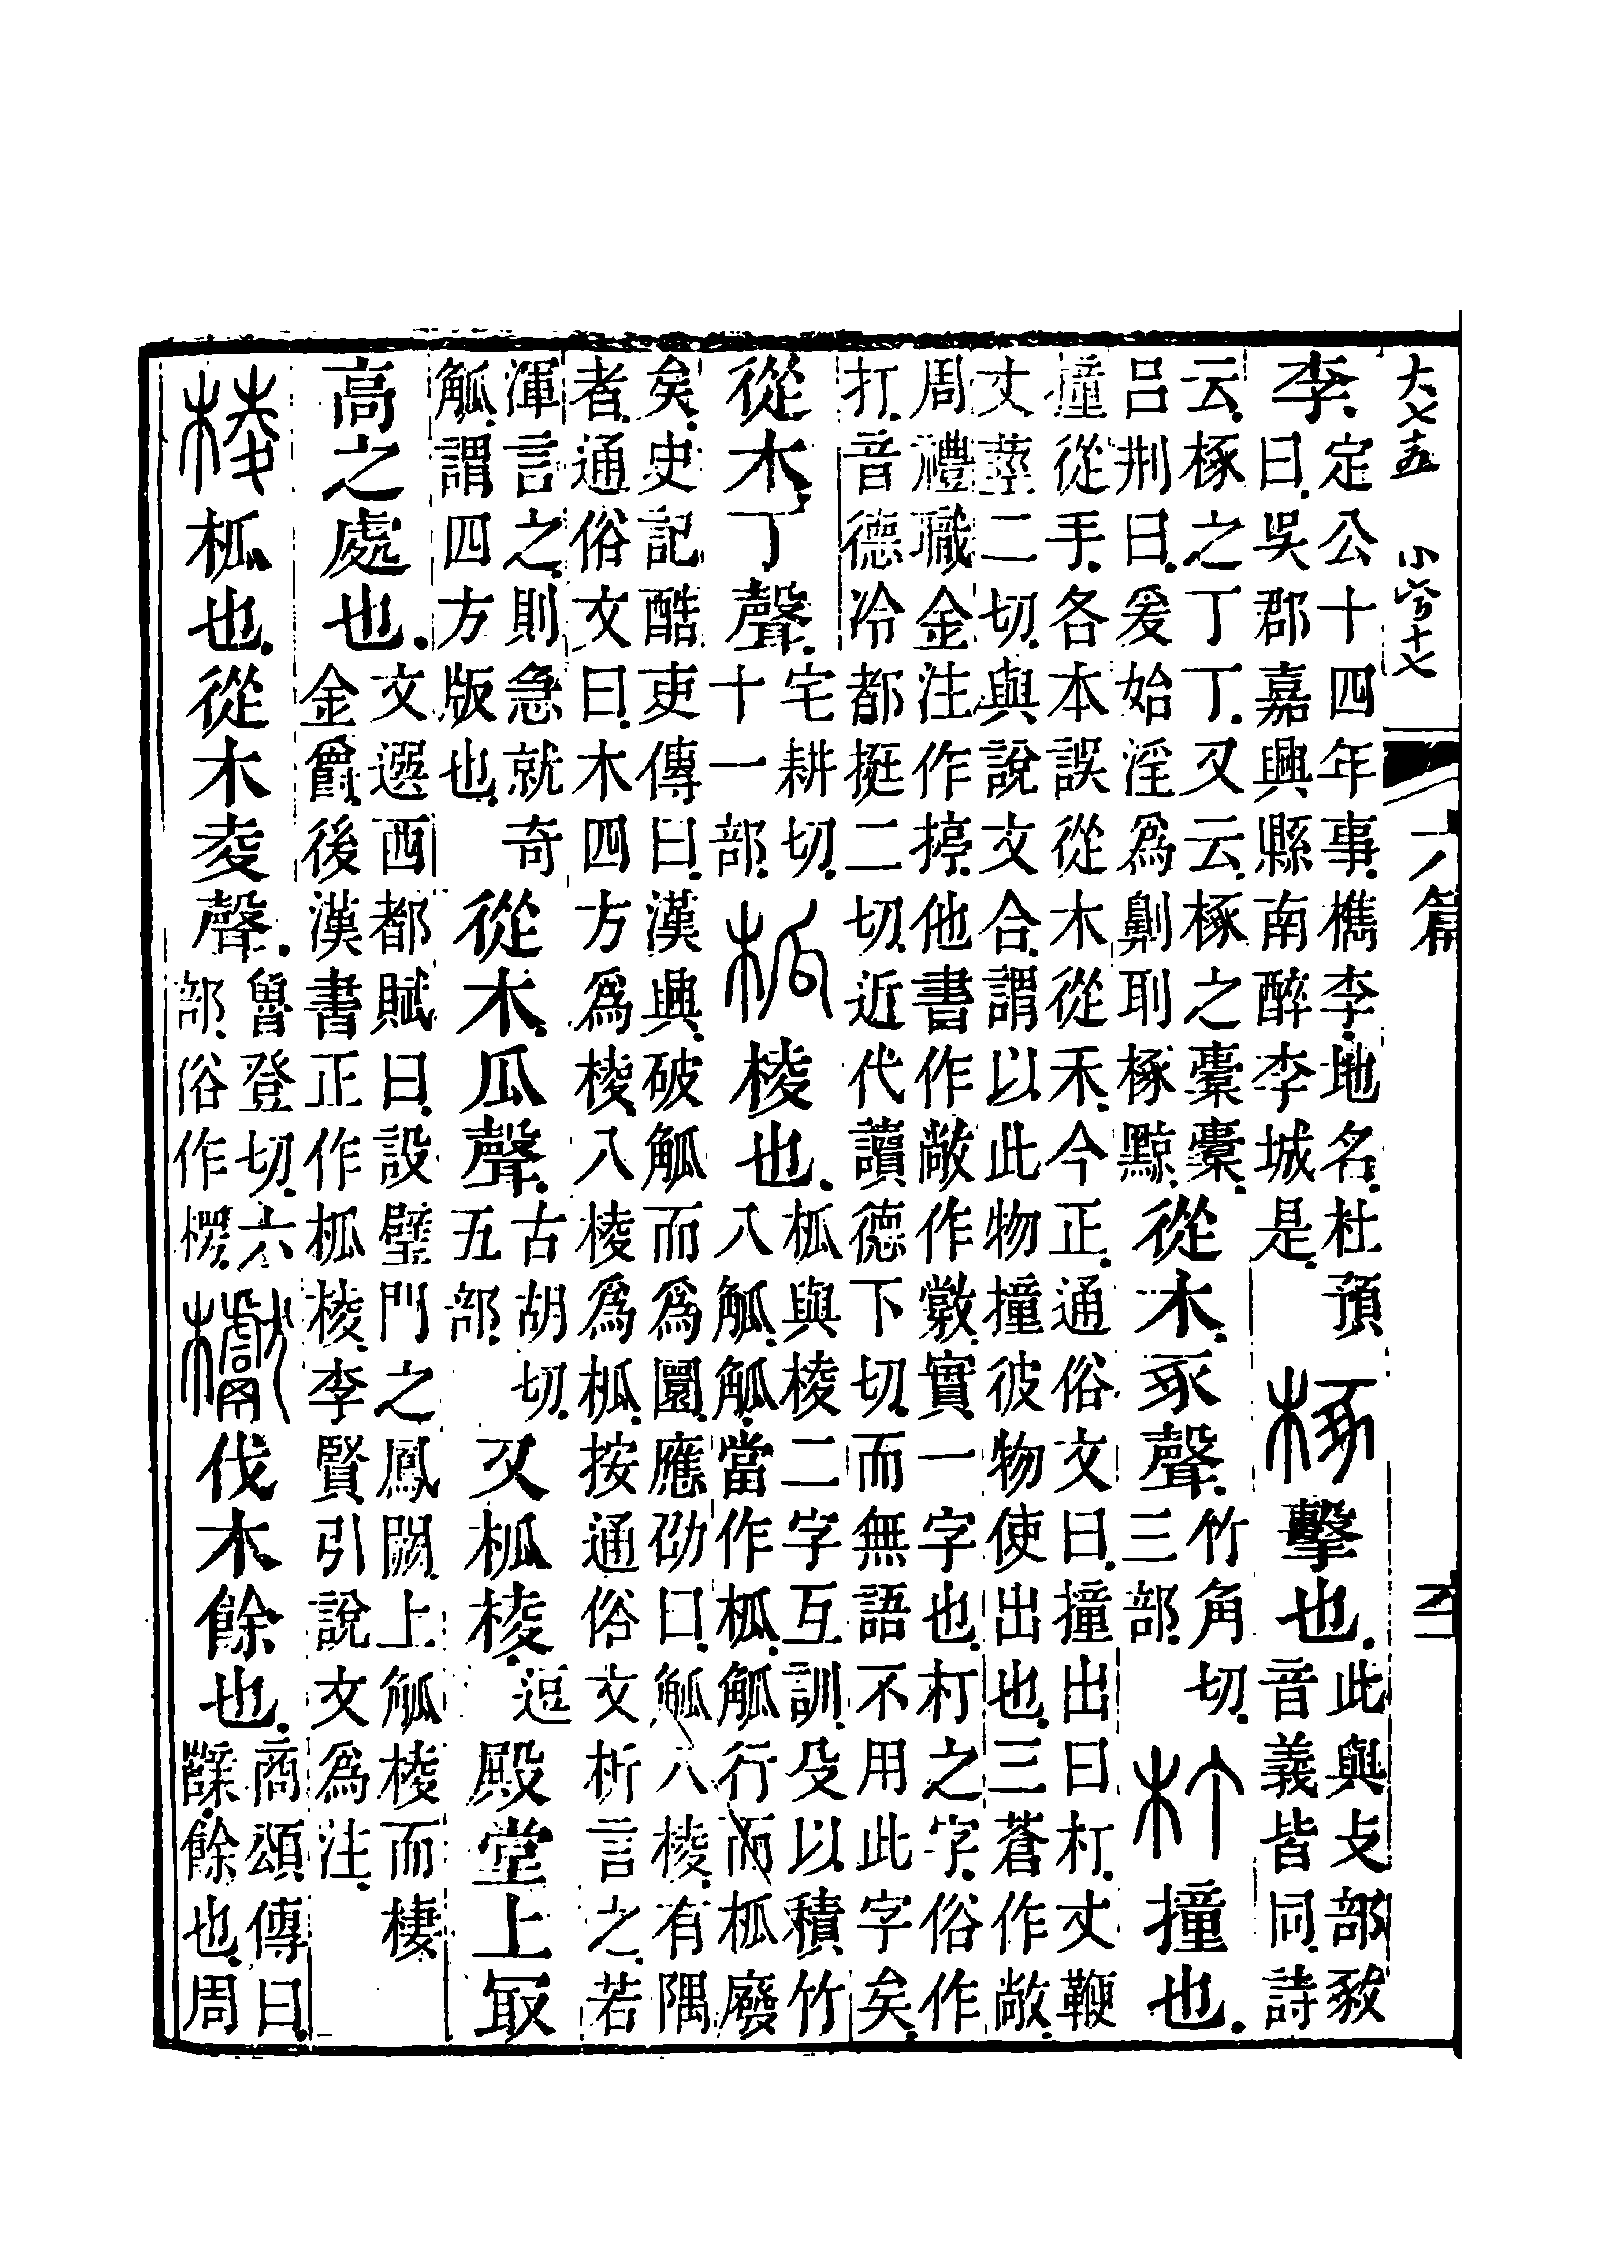 大七五
六篇
李。定公十四年事。檇李。地名。杜預曰。吳郡嘉興縣南醉李城是。椓擊也。此與攴部㪇音義皆同。詩
云。椓之丁丁。又云。椓之橐橐。呂荆曰。爰始淫爲劓刵椓黥。從木。豖聲。竹角切。三部。朾撞也。
撞從手。各本誤從木從禾。今正。通俗文曰。撞出曰朾。丈鞭丈莖二切。與說文合。謂以此物撞彼物使出也。三蒼作敞。
周禮職金注作揨。他書作敞作㪣。實一字也。朾之字。俗作打。音德冷都挺二切。近代讀德下切。而無語不用此字矣。
從木。丁聲。宅耕切。十一部。柧棱也。柧與棱二字互訓。殳以積竹八觚。觚當作柧。觚行而柧廢
矣。史記酷吏傳曰。漢興。破觚而爲圜。應劭曰。觚八棱有隅者。通俗文曰。木四方爲棱。八棱爲柧。按通俗文析言之。若
渾言之。則急就奇觚。謂四方版也。從木。瓜聲。古胡切。五部。又柧棱。逗殿堂上冣
高之處也。文選西都賦曰。設璧門之鳳闕。上觚棱而棲金爵。後漢書正作柧棱。李賢引說文爲注。
棱柧也。從木夌聲。魯登切。六部。俗作楞。𣡌伐木餘也。商頌傳曰。櫱。餘也。周